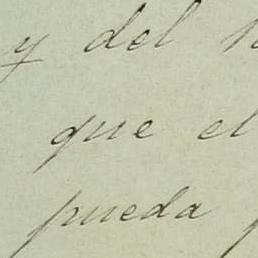 y del
que el
pueda